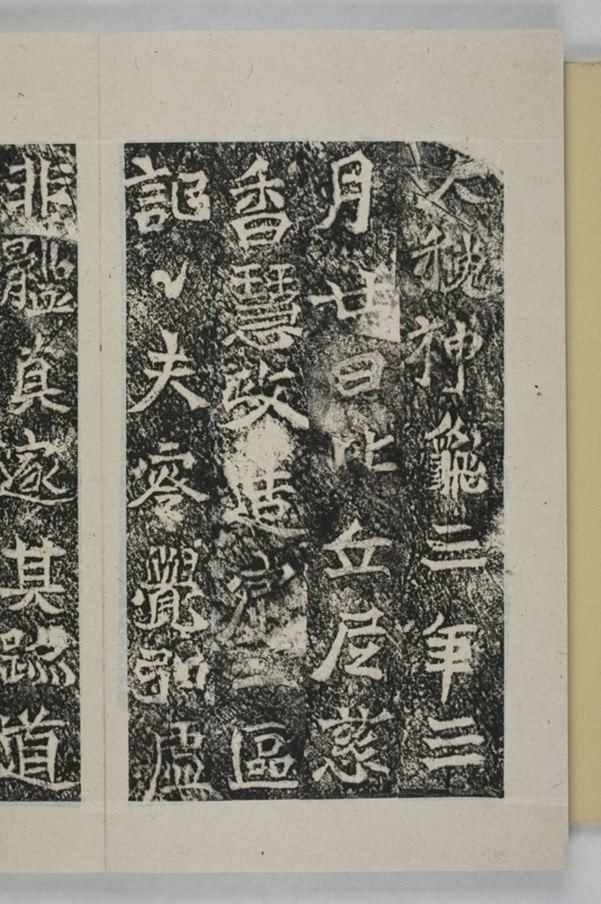 大魏神龜三年三
月廿日比丘尼慈
香慧政造窟一區
記、夫零覺弘虛
非體真邃其跡道